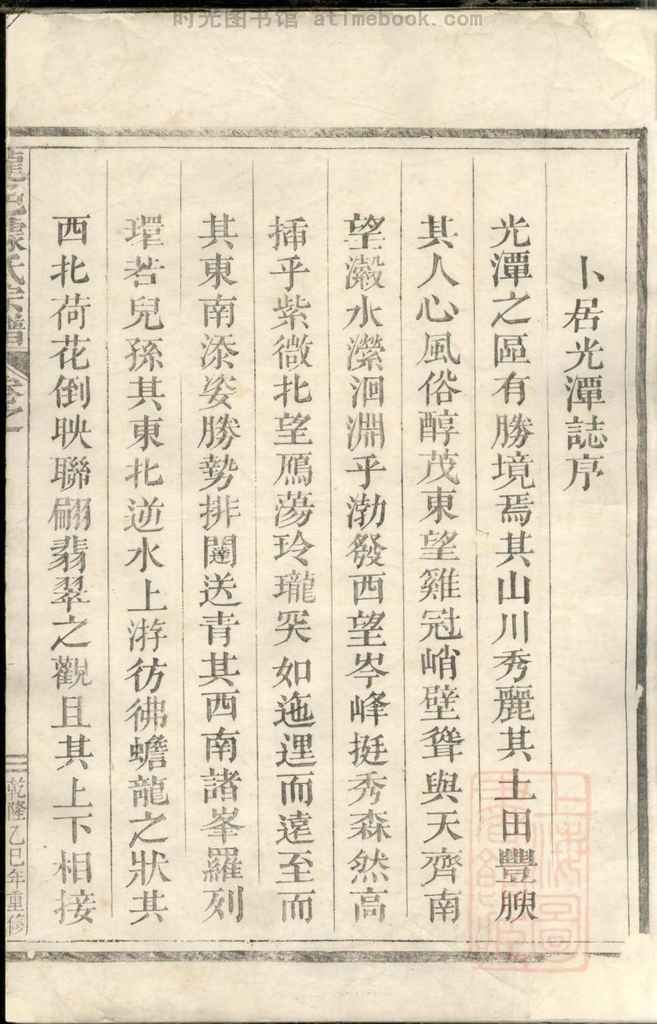 时光图书馆 atimebook.com
卜居光潭誌序
光潭之區有勝境焉其山川秀麗其土田豐腴
其人心風俗醇茂東望雞冠峭壁聳與天齊南
望瀫水瀠洄淵乎渤發西望岑峰挺秀森然高
揷乎紫微北望鴈蕩玲瓏突如迤邐而遠至而
其東南添姿勝勢排闥送青其西南諸峯羅列
環若兒孫其東北逆水上游彷彿蟾龍之狀其
西北荷花倒映聯翩翡翠之觀且其上下相接
氏宗譜
卷之一
乾隆乙巳年重修